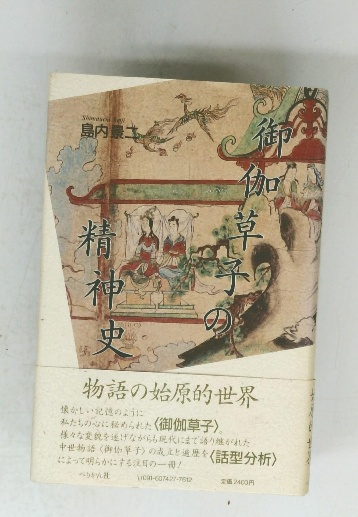 Shimauchi Keiji
島内景二
御伽草子の
精神史
物語の始原的世界
懐かしい記憶のように
私たちの心に秘められた〈御伽草子〉。
様々な変貌を遂げながらも現代にまで語り継がれた
中世物語〈御伽草子〉の成立と遍歴を〈話型分析〉
によって明らかにする注目の一冊!
ぺりかん社
定価2400円